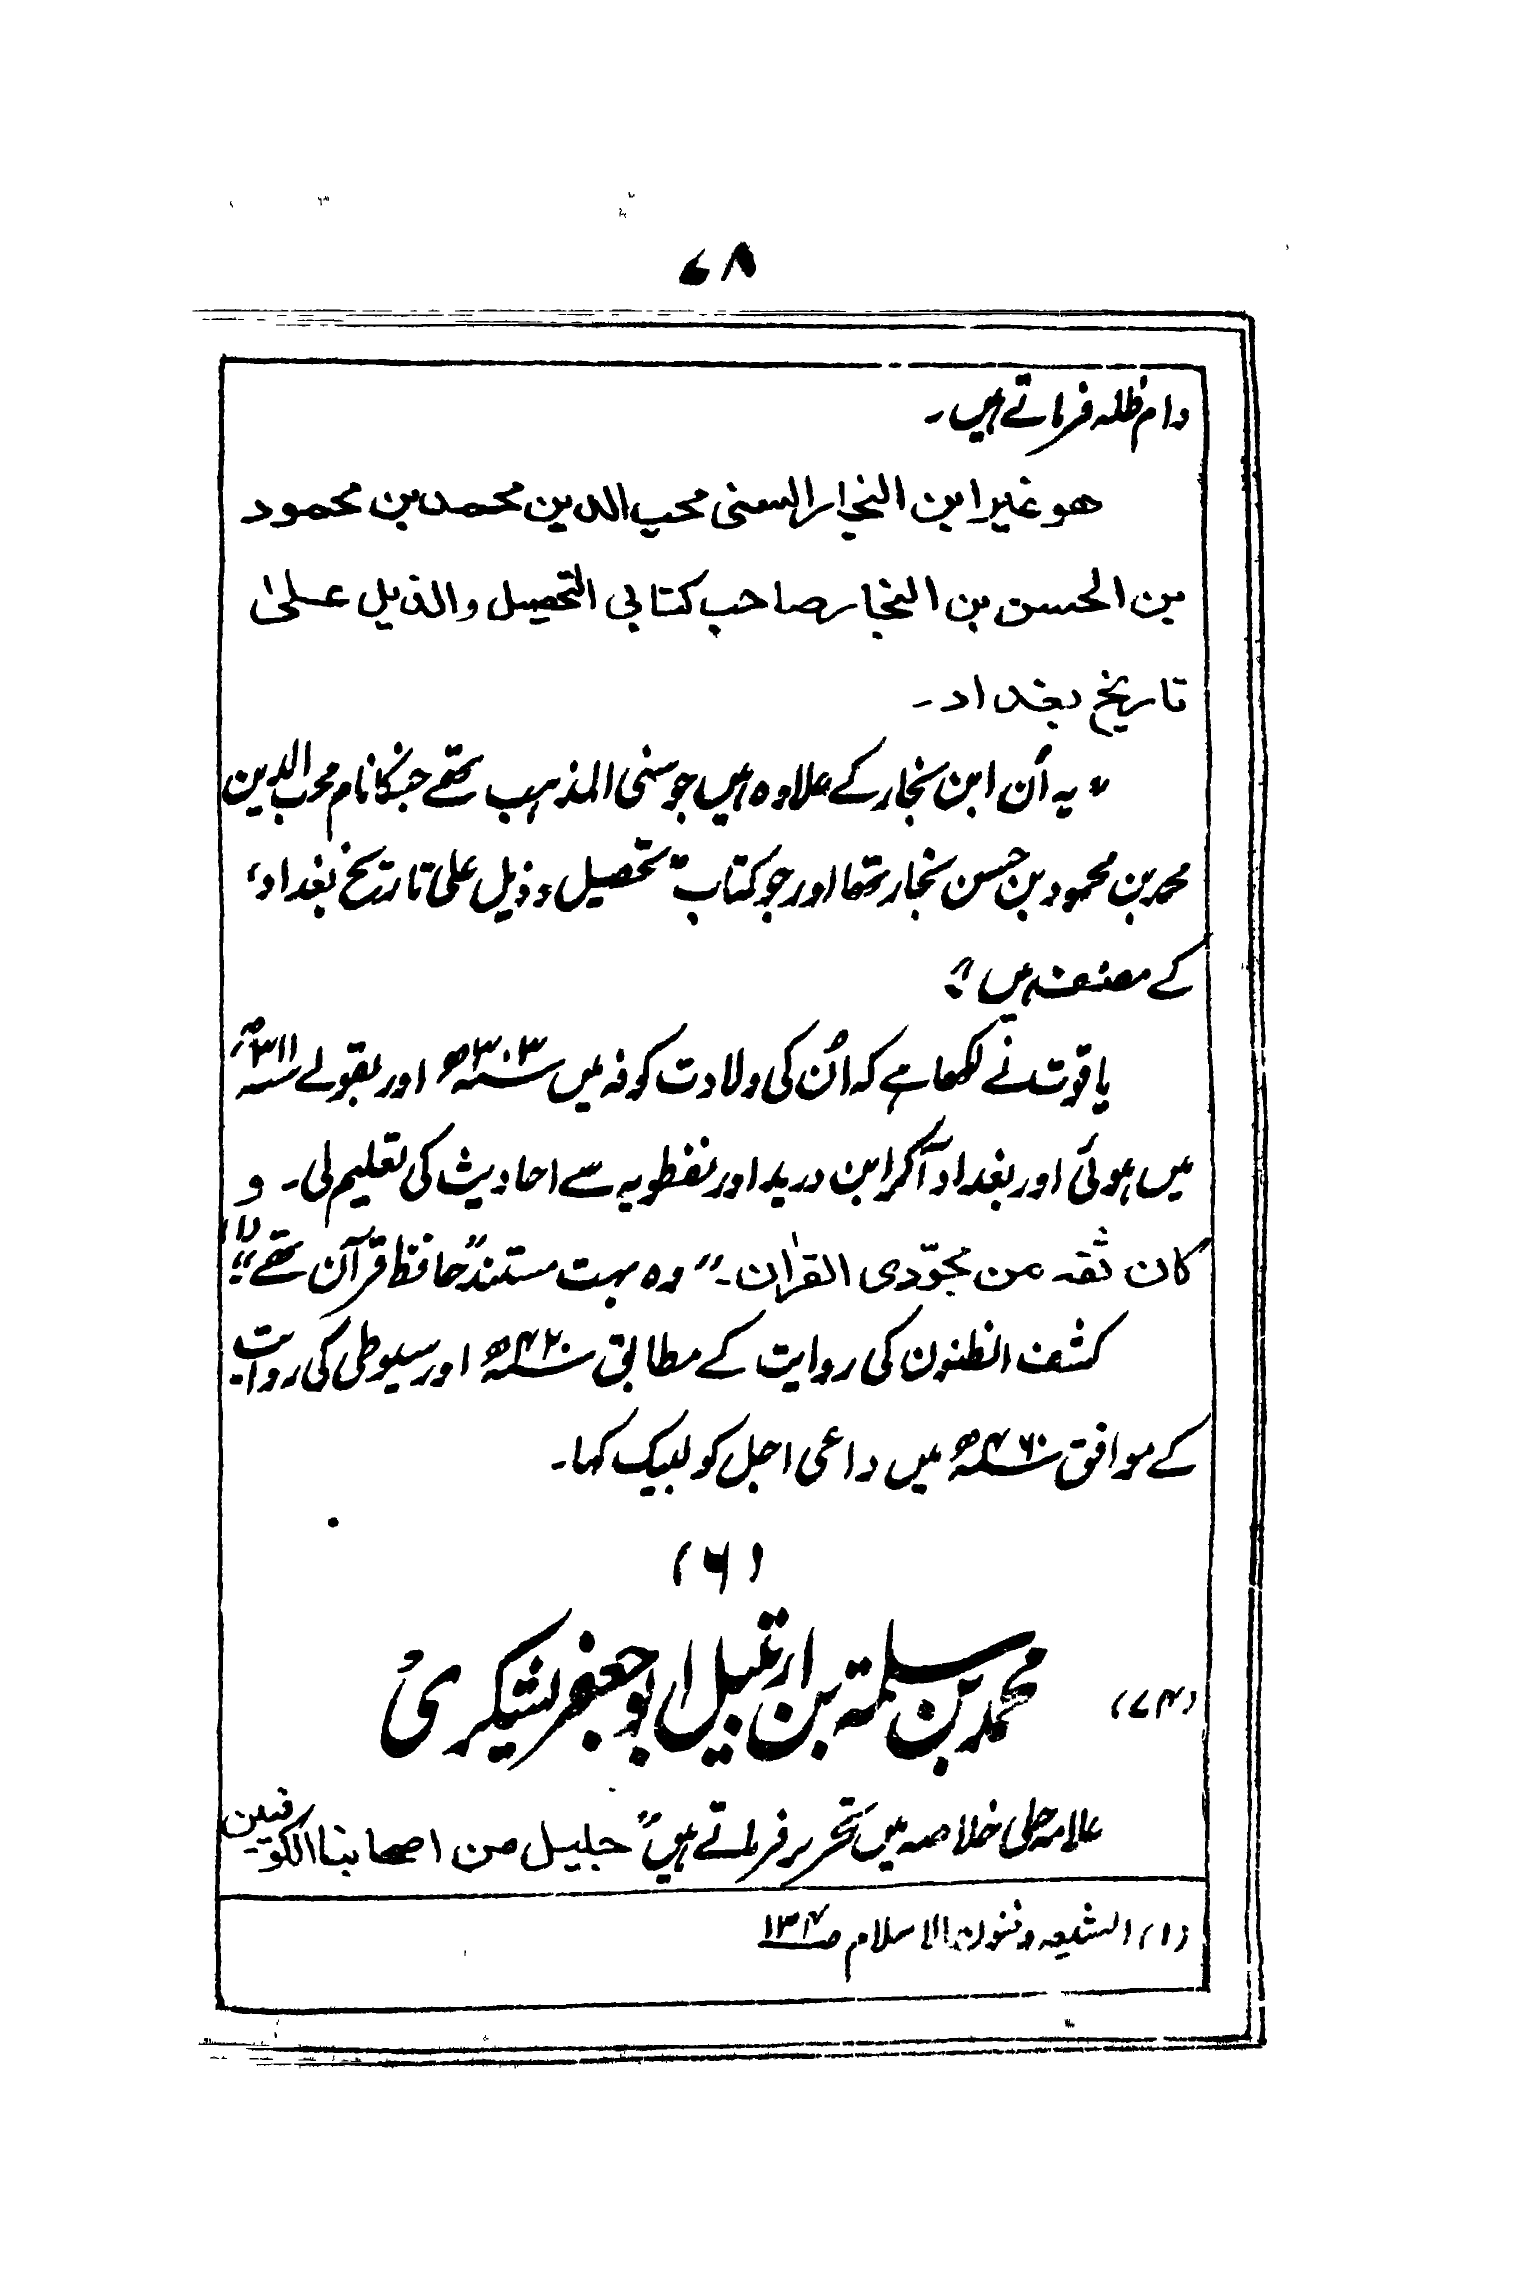 ۷۸
دام ظلہ فرماتے ہیں۔
ھو غیر ابن النجار السنی محب الدین محمد بن محمود
بن الحسن بن النجار صاحب کتابی التحصیل والذیل علیٰ
تاریخ بغداد۔
”یہ اُن ابن نجار کے علاوہ ہیں جو سنی المذہب تھے جنکا نام محب الدین
محمد بن محمود بن حسن نجار تھا اور جو کتاب ”تحصیل و ذیل علی تاریخ بغداد“
کے مصنف ہیں“
یاقوت نے لکھا ہے کہ اُن کی ولادت کوفہ میں ۳۰۳ھ اور بقولے ۳۱۱ھ
میں ہوئی اور بغداد آکر ابن درید اور نفطویہ سے احادیث کی تعلیم لی۔ و
کان ثقہ من مجوّدی القراٰن۔ ”وہ بہت مستند حافظ قرآن تھے“ (۱)
کشف الظنون کی روایت کے مطابق ۴۲۰ھ اور سیوطی کی روایت
کے موافق ۴۶۰ھ میں داعی اجل کو لبیک کہا۔
(۶)
(۷۴) محمد بن سلمۃ بن ارتبیل ابو جعفر یشکری
علامہ حلی خلاصہ میں تحریر فرماتے ہیں ”جلیل من اصحابنا الکوفیین
(۱) الشیعہ و فنون الاسلام ص ۱۳۴